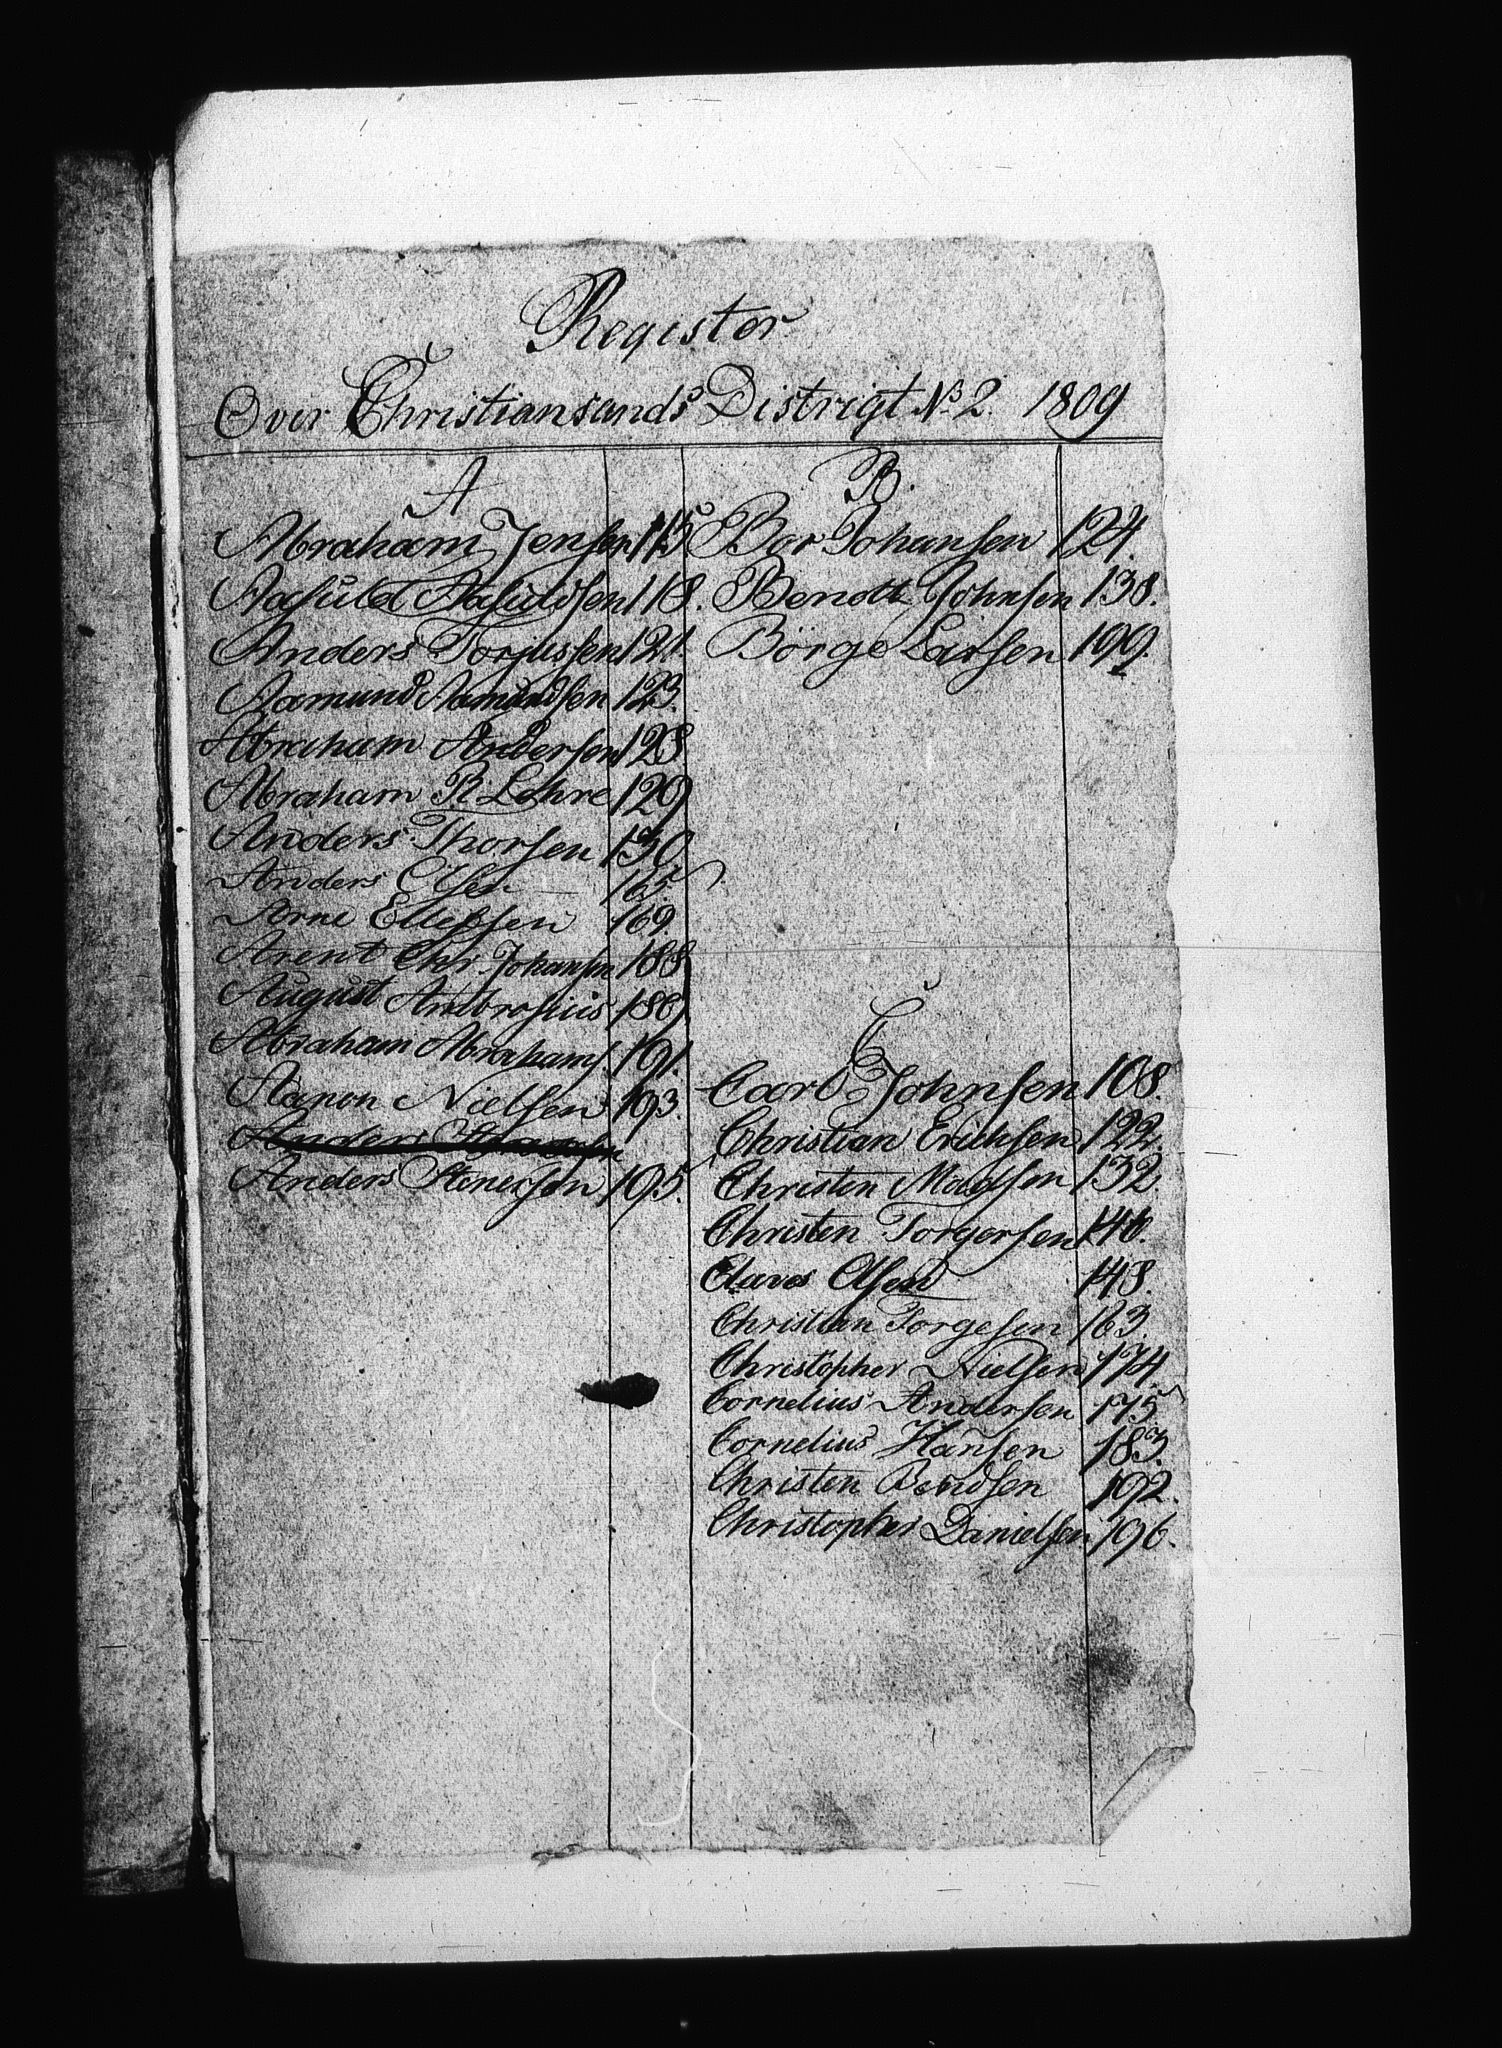 Register
Over Christiansands Distrigt No 2. 1809
A
Abraham Jensen 115
Aasuld Aasuldsen 118.
Anders Torjussen 121.
Aamund Aamundsen 123.
Abraham Andersen 128
Abraham R Lehre 129
Anders Thorsen 130
Anders Olsen 165
Arne Ellefsen 169
Arent Chr. Johansen 188
August Ambrosius 189
Abraham Abrahams. 191.
Aanon Nielsen 193.
Anders
Anders Stenersen 195.
B.
Bar Johansen 124.
Bendt Johnsen 138.
Börge Larsen 199
C
Carl Johnsen 108.
Christian Erichsen 122
Christen Madsen 132
Christen Torgersen 146.
Claves Olsen 148.
Christian Torgesen 163.
Christopher Nielsen 174
Cornelius Andersen 175
Cornelius Hansen 183.
Christen Bendsen 192.
Christopher Danielsen 196.